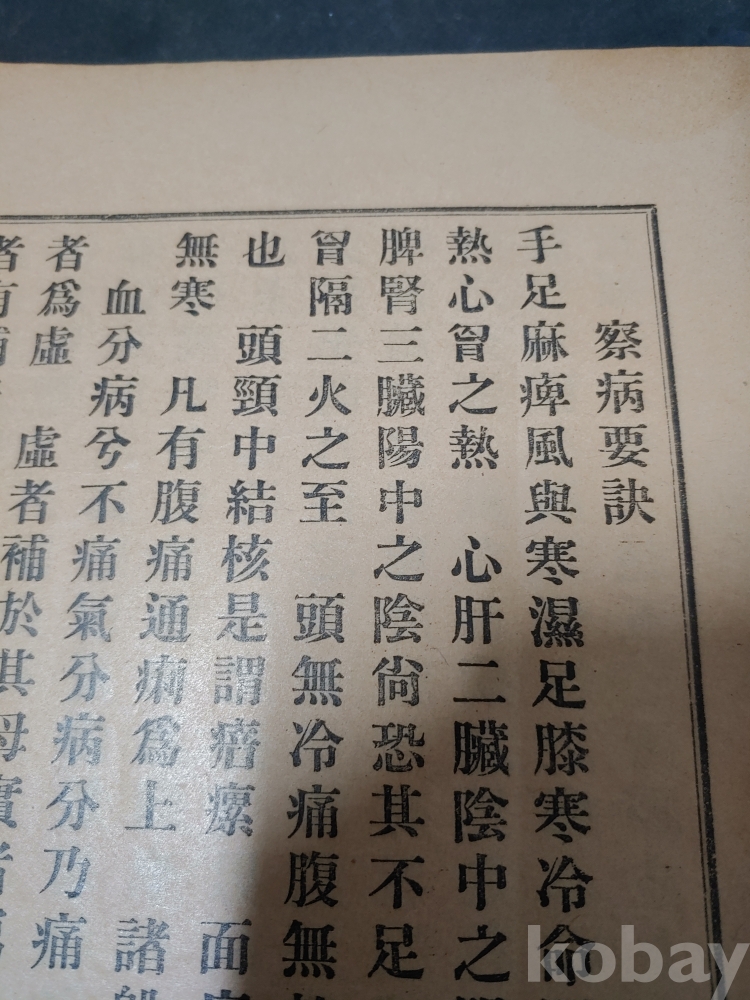 察病要訣
手足麻痺風與寒濕足膝寒冷命
熱心胷之熱 心肝二臟陰中之
脾腎三臟陽中之陰尙恐其不足
胷隔二火之至 頭無冷痛腹無
也 頭頸中結核是謂瘰 面
無寒 凡有腹痛通痢爲上 諸
血分病兮不痛氣分病分乃痛
者爲虛 虛者補於其母實者
kobay